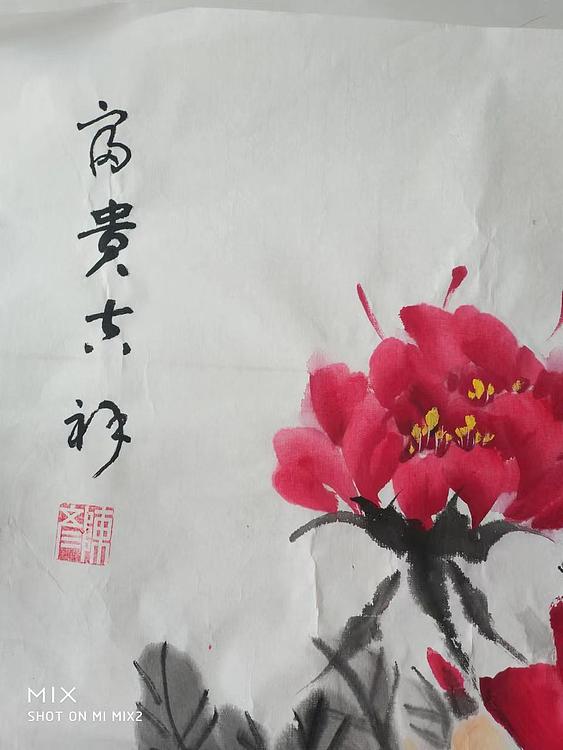 富貴吉祥
MIX
SHOT ON MI MIX2